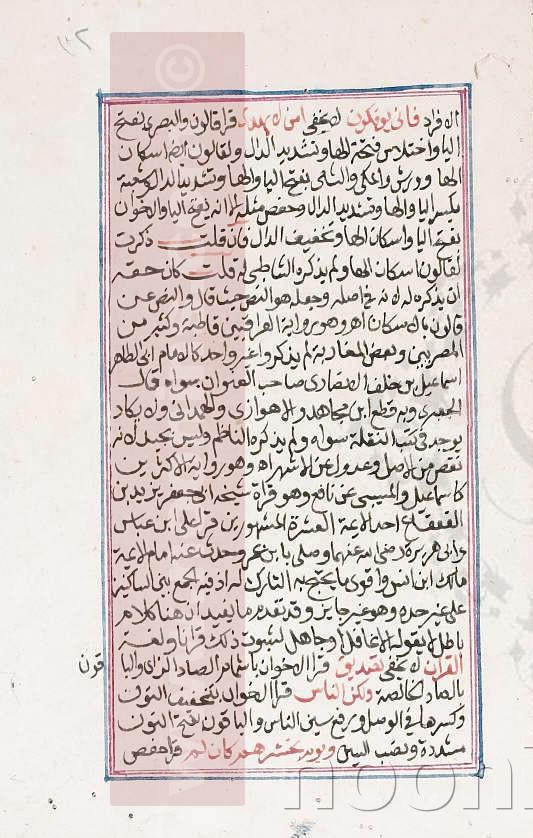 الافراد فانى يوفكون لا يخفى امن لا يهدى قرا قالون والبصرى بفتح
اليا واختلاس فتحة الها وتشديد الدال ولقالون ايضا اسكان
الها وورش والمكى والشامى بفتح اليا والها وتشديد الدال وشعبة
بكسر اليا والها وتشديد الدال وحفص مثله الا انه يفتح اليا والاخوان
بفتح اليا واسكان الها وتخفيف الدال فان قلت ذكرت
لقالون اسكان الها ولم يذكره الشاطبى قلت كان حقه
ان يذكره لانه فى اصله وجعله هو النص حيث قال والنص عن
قالون بالاسكان اه وهو رواية العراقيين قاطبة وكثير من
المصريين وبعض المغاربة لم يذكروا غيره واحد كالامام ابى الطاهر
اسماعيل بن خلف الانصارى صاحب العنوان سواه قال
الجعبرى وبه قطع ابن مجاهد والاهوازى والهمدانى ولا يكاد
يوجد فى كتب النقلة سواه ولم يذكره الناظم وليس بجيد لانه
نقص من الاصل وعدول عن الاشهر اه وهو رواية الاكثرين
كاسماعيل والمسيبى عن نافع وهو قراة شيخه ابى جعفر يزيد بن
القعقاع احد الايمة العشرة المشهورين قرا على ابن عباس
وابى هريرة رضى الله عنهما وصلى بابن عمر وحدث عنه امام الايمة
مالك ابن انس واقوى ما يحتج به التارك له ان فيه الجمع بين الساكنين
على غير حده وهو غير جايز وقد تقدم ما يفيد ان هذا كلام
باطل لا يقوله الا غافل او جاهل لثبوت ذلك قرانا ولغة
القران لا يخفى تصديق قرا الاخوان باشمام الصاد الزاى والباقون
بالصاد الخالصة ولكن الناس قرا الاخوان بتخفيف النون
وكسرها فى الوصل ورفع سين الناس والباقون بفتح النون
مشددة ونصب السين ويوم نحشرهم كان لم قرا حفص